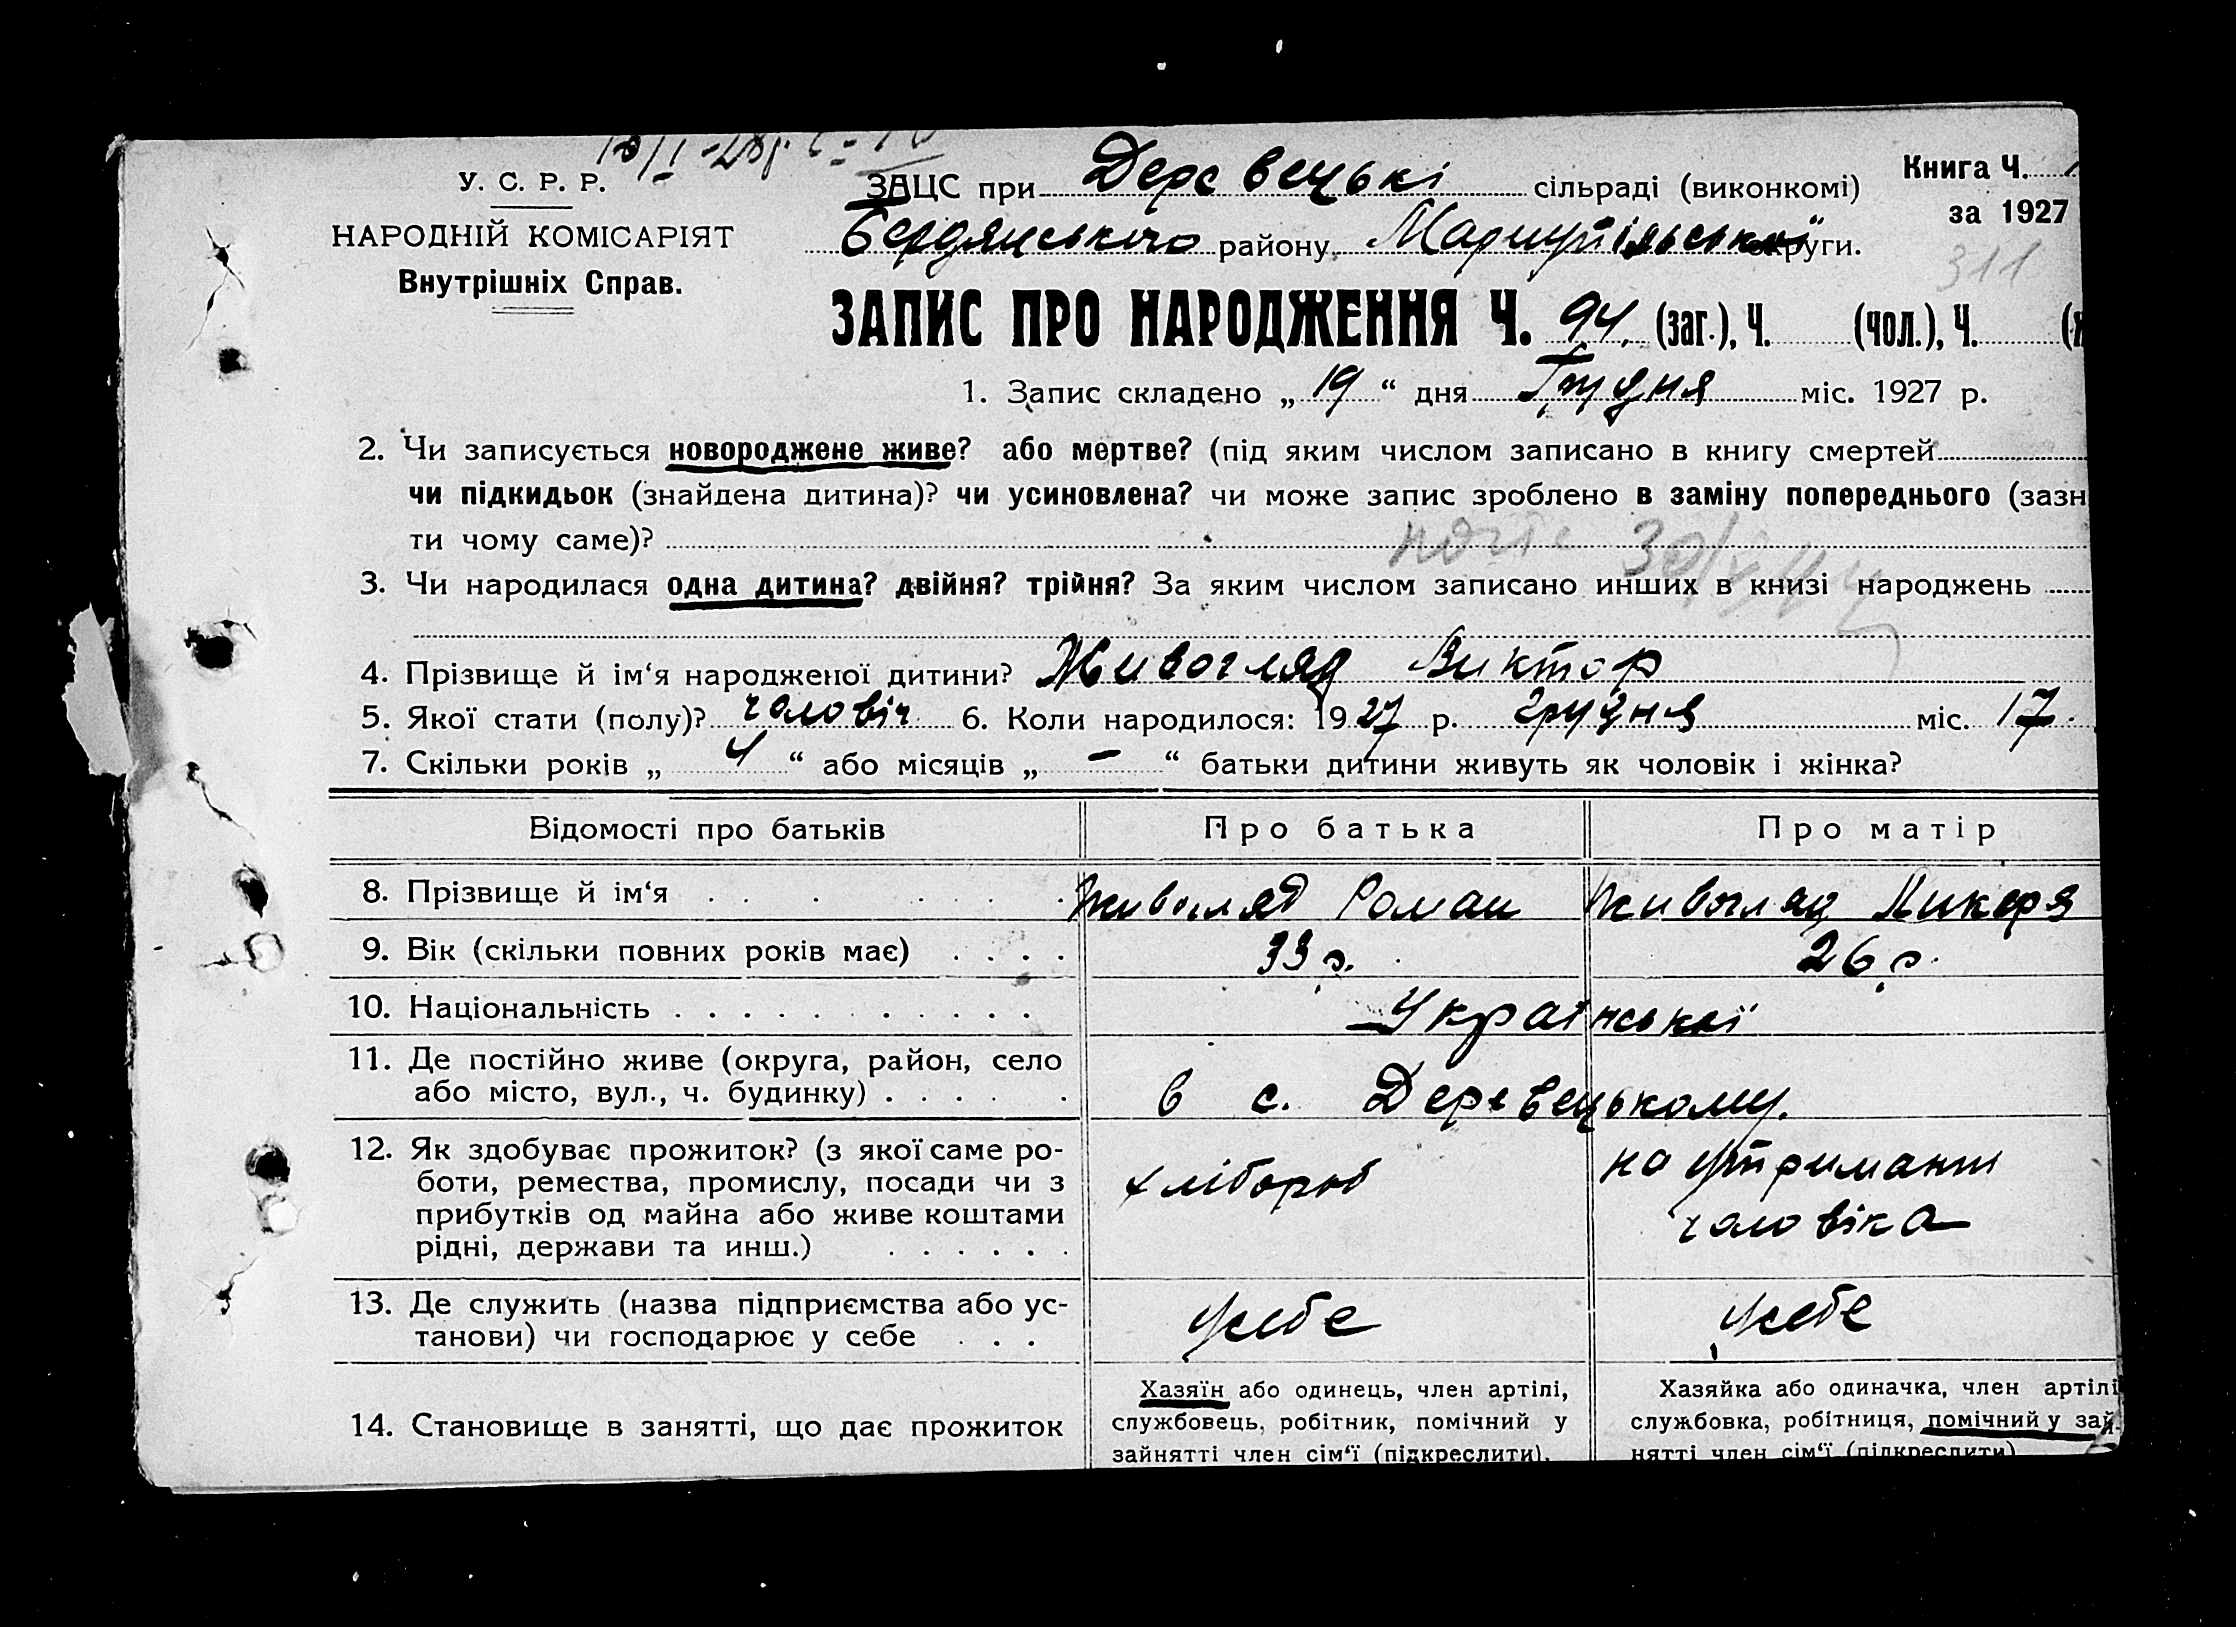 У. С. Р. Р.
НАРОДНІЙ КОМІСАРІЯТ
Внутрішніх Справ.
ЗАЦС при Деревецькі сільраді (виконкомі)
Бердянського району, Маріупільської округи.
Книга Ч.
за 1927
311
ЗАПИС ПРО НАРОДЖЕННЯ Ч. 94. (заг.), Ч. (чол.), Ч.
1. Запис складено „ 19 “ дня Грудня міс. 1927 р.
2. Чи записується новороджене живе? або мертве? (під яким числом записано в книгу смертей
чи підкидьок (знайдена дитина)? чи усиновлена? чи може запис зроблено в заміну попереднього (зазн
ти чому саме)?
3. Чи народилася одна дитина? двійня? трійня? За яким числом записано инших в книзі народжень
4. Прізвище й ім‘я народженої дитини? Живогляд Виктор
5. Якої стати (полу)? чоловіч 6. Коли народилося: 1927 р. грудня міс. 17.
7. Скільки років „ 4 “ або місяців „ – “ батьки дитини живуть як чоловік і жінка?
Відомості про батьків Про батька Про матір
8. Прізвище й ім‘я Живогляд Роман Живогляд Ликеря
9. Вік (скільки повних років має) 33 р. 26 р.
10. Національність Української
11. Де постійно живе (округа, район, село
або місто, вул., ч. будинку) в с. Деревецькому.
12. Як здобуває прожиток? (з якої саме ро-
боти, ремества, промислу, посади чи з
прибутків од майна або живе коштами
рідні, держави та инш.)
хлібороб
на утриманні
чоловіка
13. Де служить (назва підприємства або ус-
танови) чи господарює у себе
у себе у себе
14. Становище в занятті, що дає прожиток
Хазяїн або одинець, член артілі,
службовець, робітник, помічний у
зайнятті член сім‘ї (підкреслити).
Хазяйка або одиначка, член артілі
службовка, робітниця, помічний у зай-
нятті член сім‘ї (підкреслити)